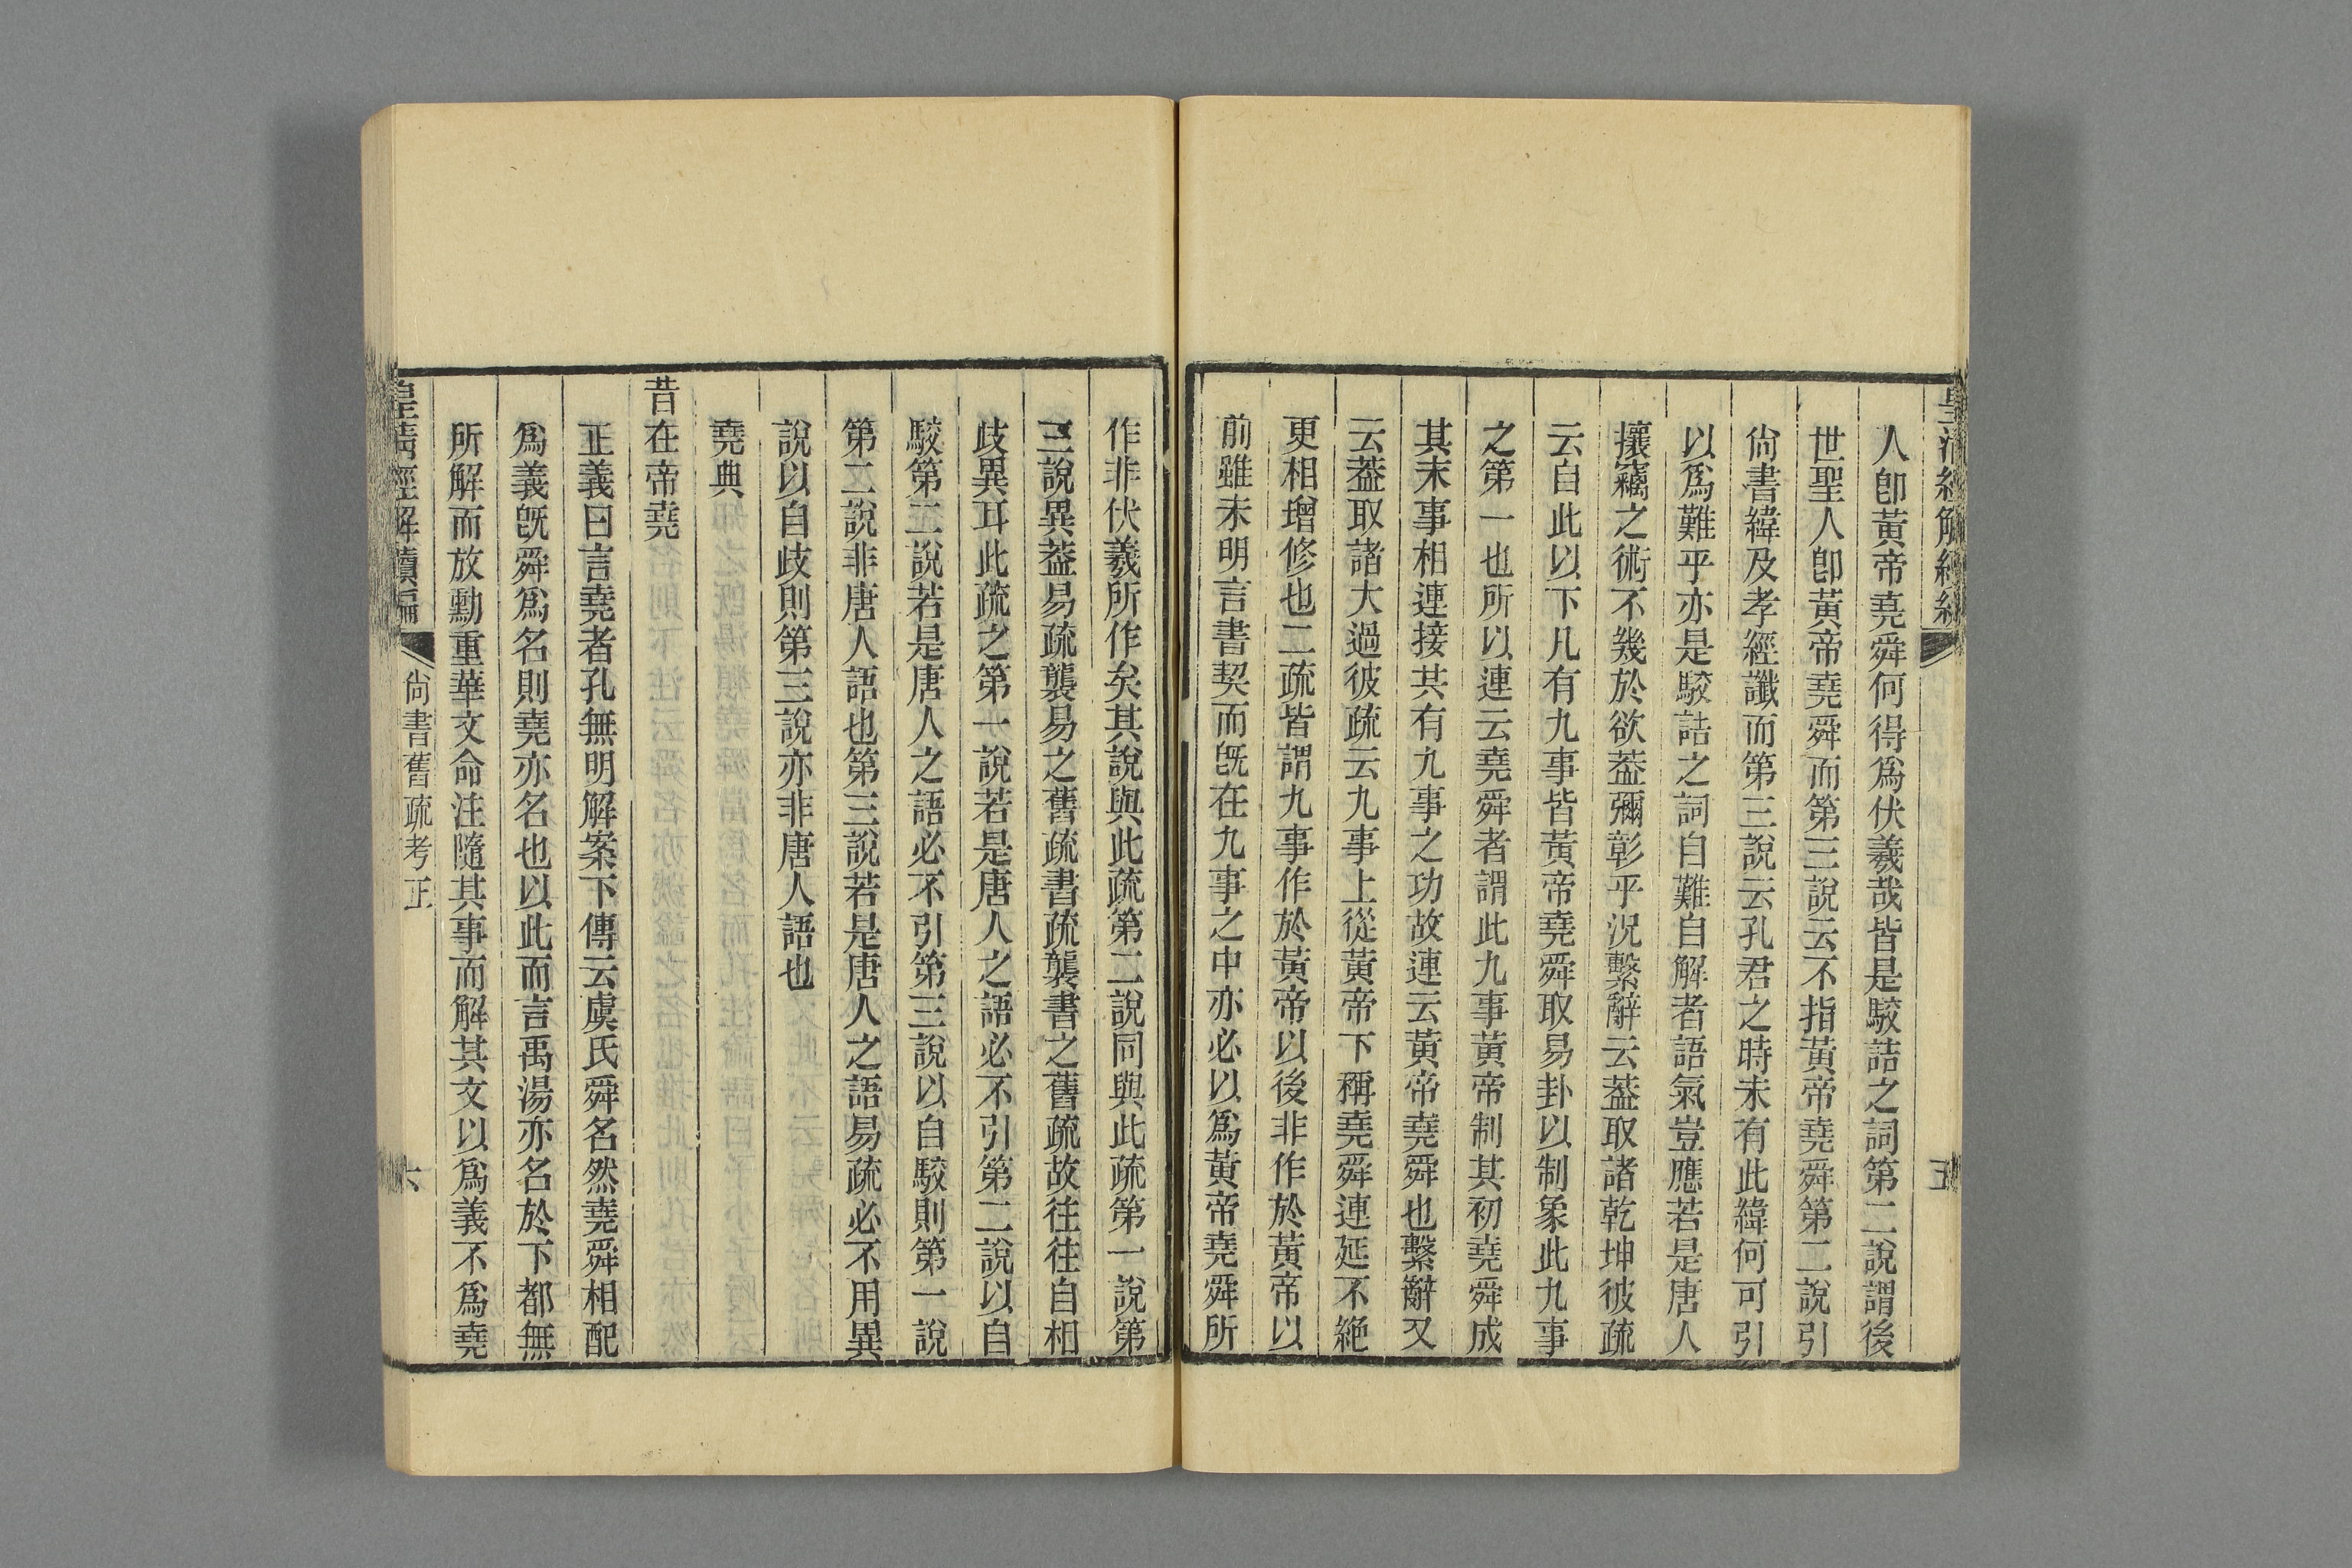 皇清經解續編
五
人卽黃帝堯舜何得爲伏羲哉皆是駮詰之詞第二說謂後
世聖人卽黃帝堯舜而第三說云不指黃帝堯舜第二說引
尙書緯及孝經讖而第三說云孔君之時未有此緯何可引
以爲難乎亦是駮詰之詞自難自解者語氣豈應若是唐人
攘竊之術不幾於欲葢彌彰乎況繫辭云葢取諸乾坤彼疏
云自此以下凡有九事皆黃帝堯舜取易卦以制象此九事
之第一也所以連云堯舜者謂此九事黃帝制其初堯舜成
其末事相連接共有九事之功故連云黃帝堯舜也繫辭又
云葢取諸大過彼疏云九事上從黃帝下稱堯舜連延不絕
更相增修也二疏皆謂九事作於黃帝以後非作於黃帝以
前雖未明言書契而旣在九事之中亦必以爲黃帝堯舜所
作非伏羲所作矣其說與此疏第二說同與此疏第一說第
三說異葢易疏襲易之舊疏書疏襲書之舊疏故往往自相
歧異耳此疏之第一說若是唐人之語必不引第二說以自
駮第二說若是唐人之語必不引第三說以自駮則第一說
第二說非唐人語也第三說若是唐人之語易疏必不用異
說以自歧則第三說亦非唐人語也
堯典
昔在帝堯
正義曰言堯者孔無明解案下傳云虞氏舜名然堯舜相配
爲義旣舜爲名則堯亦名也以此而言禹湯亦名於下都無
所解而放勳重華文命注隨其事而解其文以爲義不爲堯
皇淸經解續編
尙書舊疏考正
六